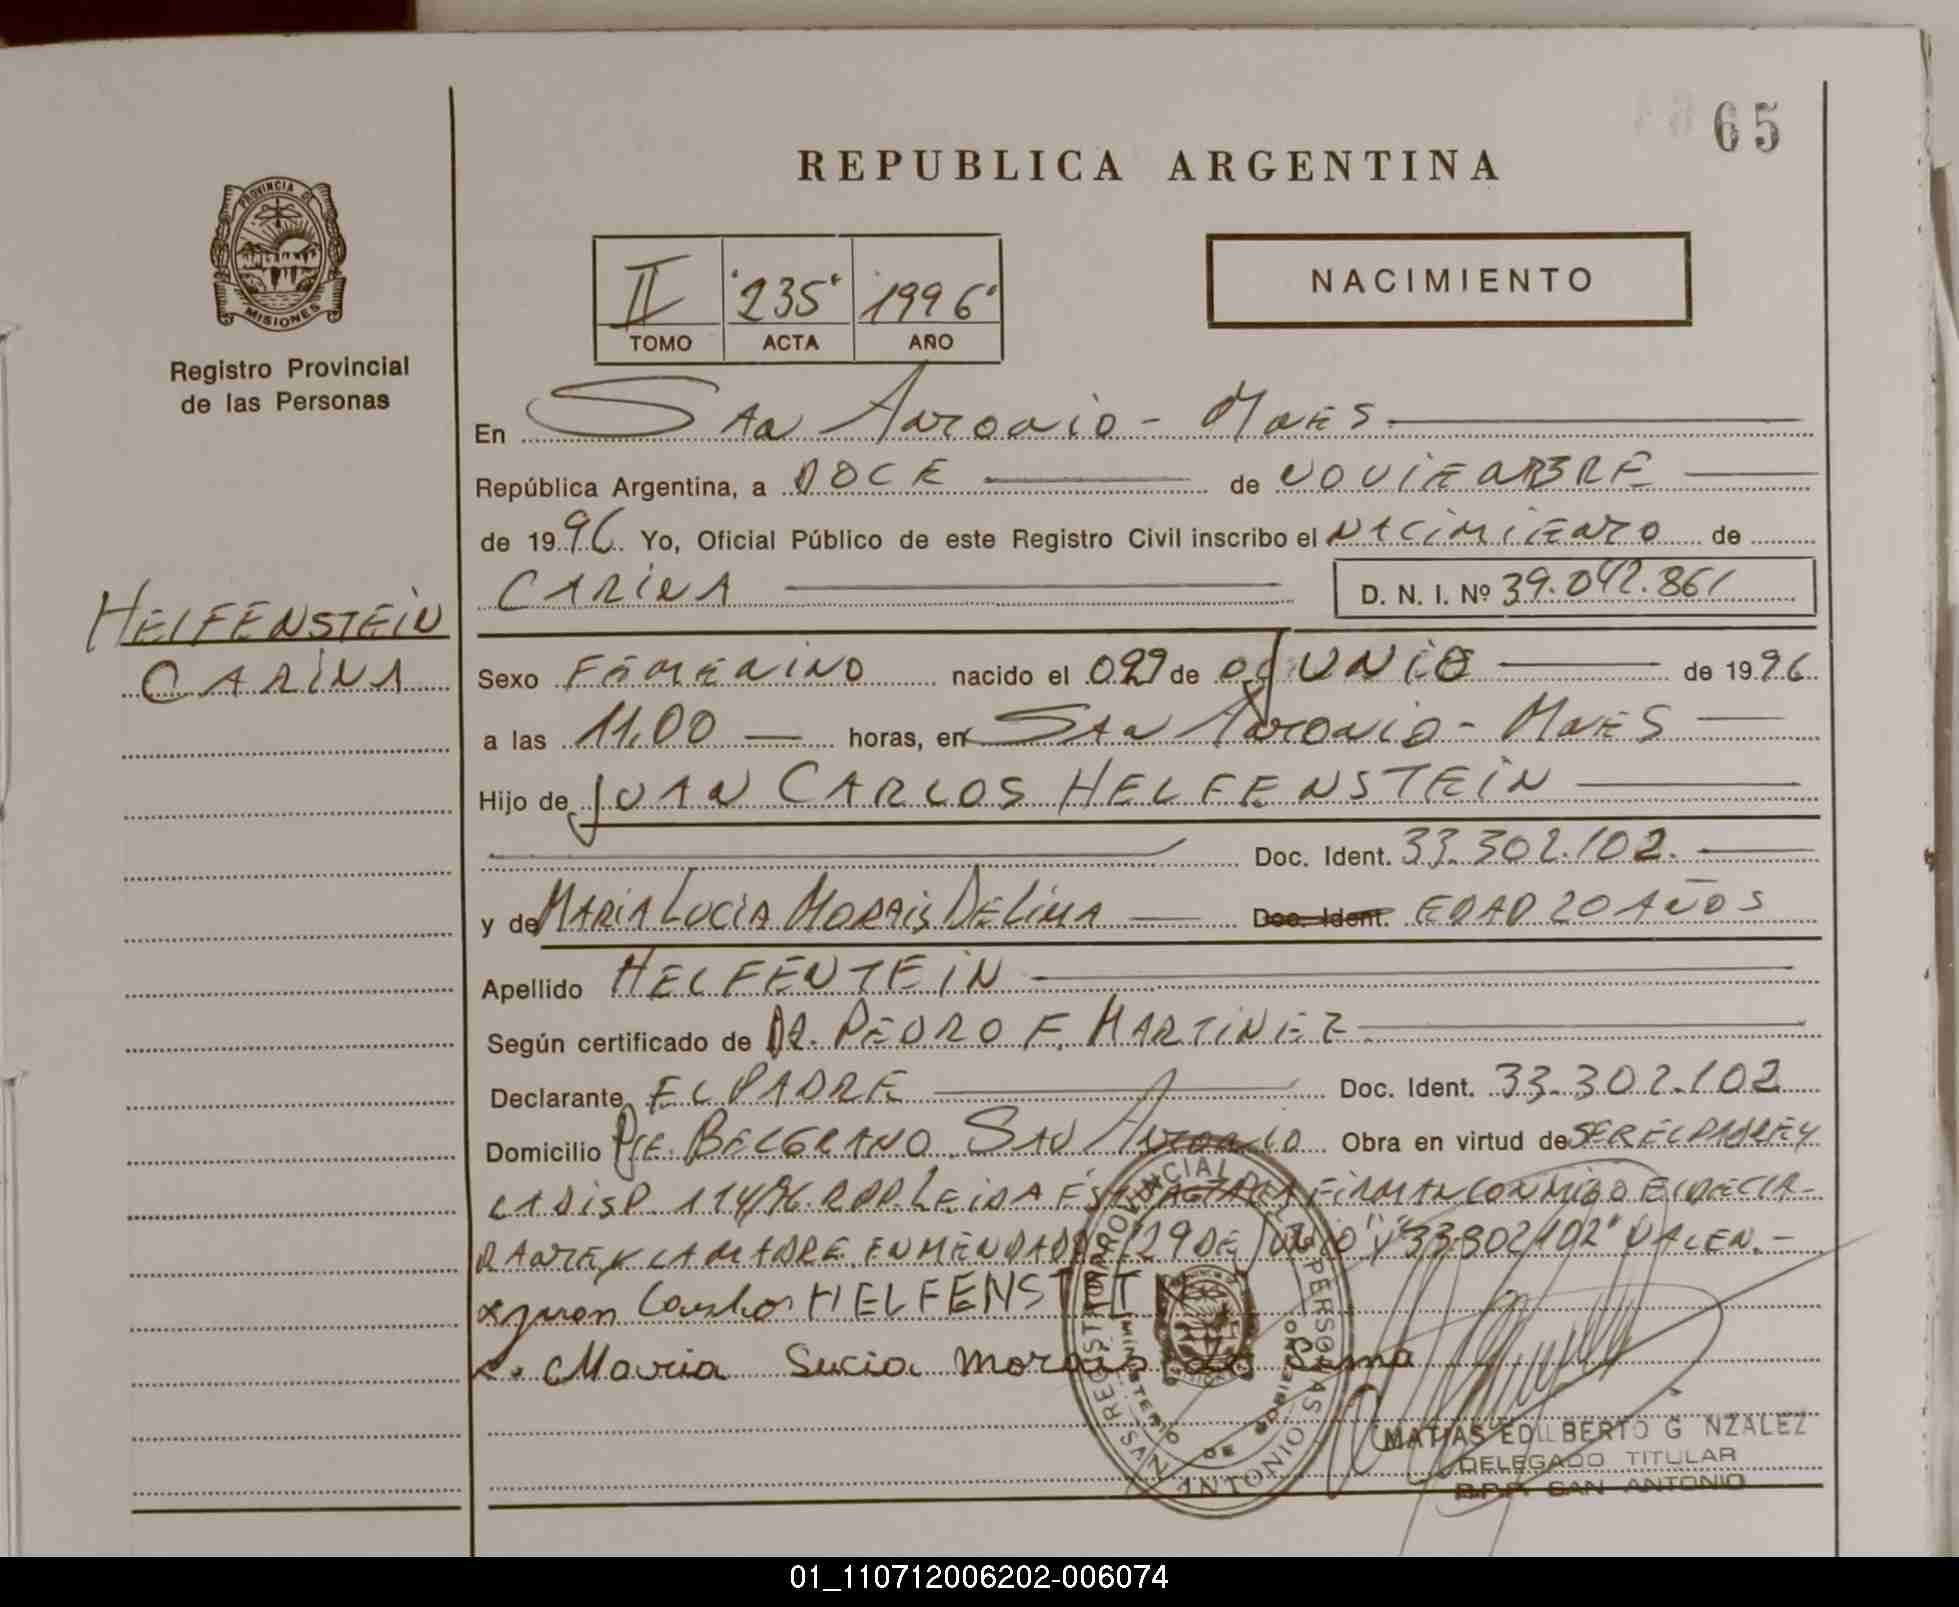 65
REPUBLICA ARGENTINA
PROVINCIA DE
MISIONES
Registro Provincial
de las Personas
II "235" "1996"
TOMO ACTA AÑO
NACIMIENTO
En San Antonio - Mnes
República Argentina, a DOCE de NOVIEMBRE
de 1996 Yo, Oficial Público de este Registro Civil inscribo el NACIMIENTO de
CARINA D. N. I. Nº 39.042.861
HELFENSTEIN
CARINA
Sexo FEMENINO nacido el 029 de JUNIO de 1996
a las 11,00 horas, en SAN ANTONIO - MNES
Hijo de JUAN CARLOS HELFENSTEIN
Doc. Ident. 33.302.102.
y de MARIA LUCIA MORAIS DE LIMA Doc. Ident. EDAD 20 AÑOS
Apellido HELFENTEIN
Según certificado de DR. PEDRO F. MARTINEZ
Declarante EL PADRE Doc. Ident. 33.302.102
Domicilio PJE. BELGRANO. SAN ANTONIO Obra en virtud de SER EL PADRE Y
LA DISP. 114/96. RPP. LEIDA ESTA ACTA LA FIRMAN CONMIGO EL DECLA-
RANTE Y LA MADRE. ENMENDADO "29 DE JUNIO" Y "33.302.102" VALEN. -
x Juan Carlos HELFENSTEIN
x. Maria Lucia Morais de Lima
REGISTRO PROVINCIAL DE LAS PERSONAS
MINISTERIO DE GOBIERNO
SAN ANTONIO
MATIAS EDILBERTO G NZALEZ
DELEGADO TITULAR
R.P.P. SAN ANTONIO
01_110712006202-006074